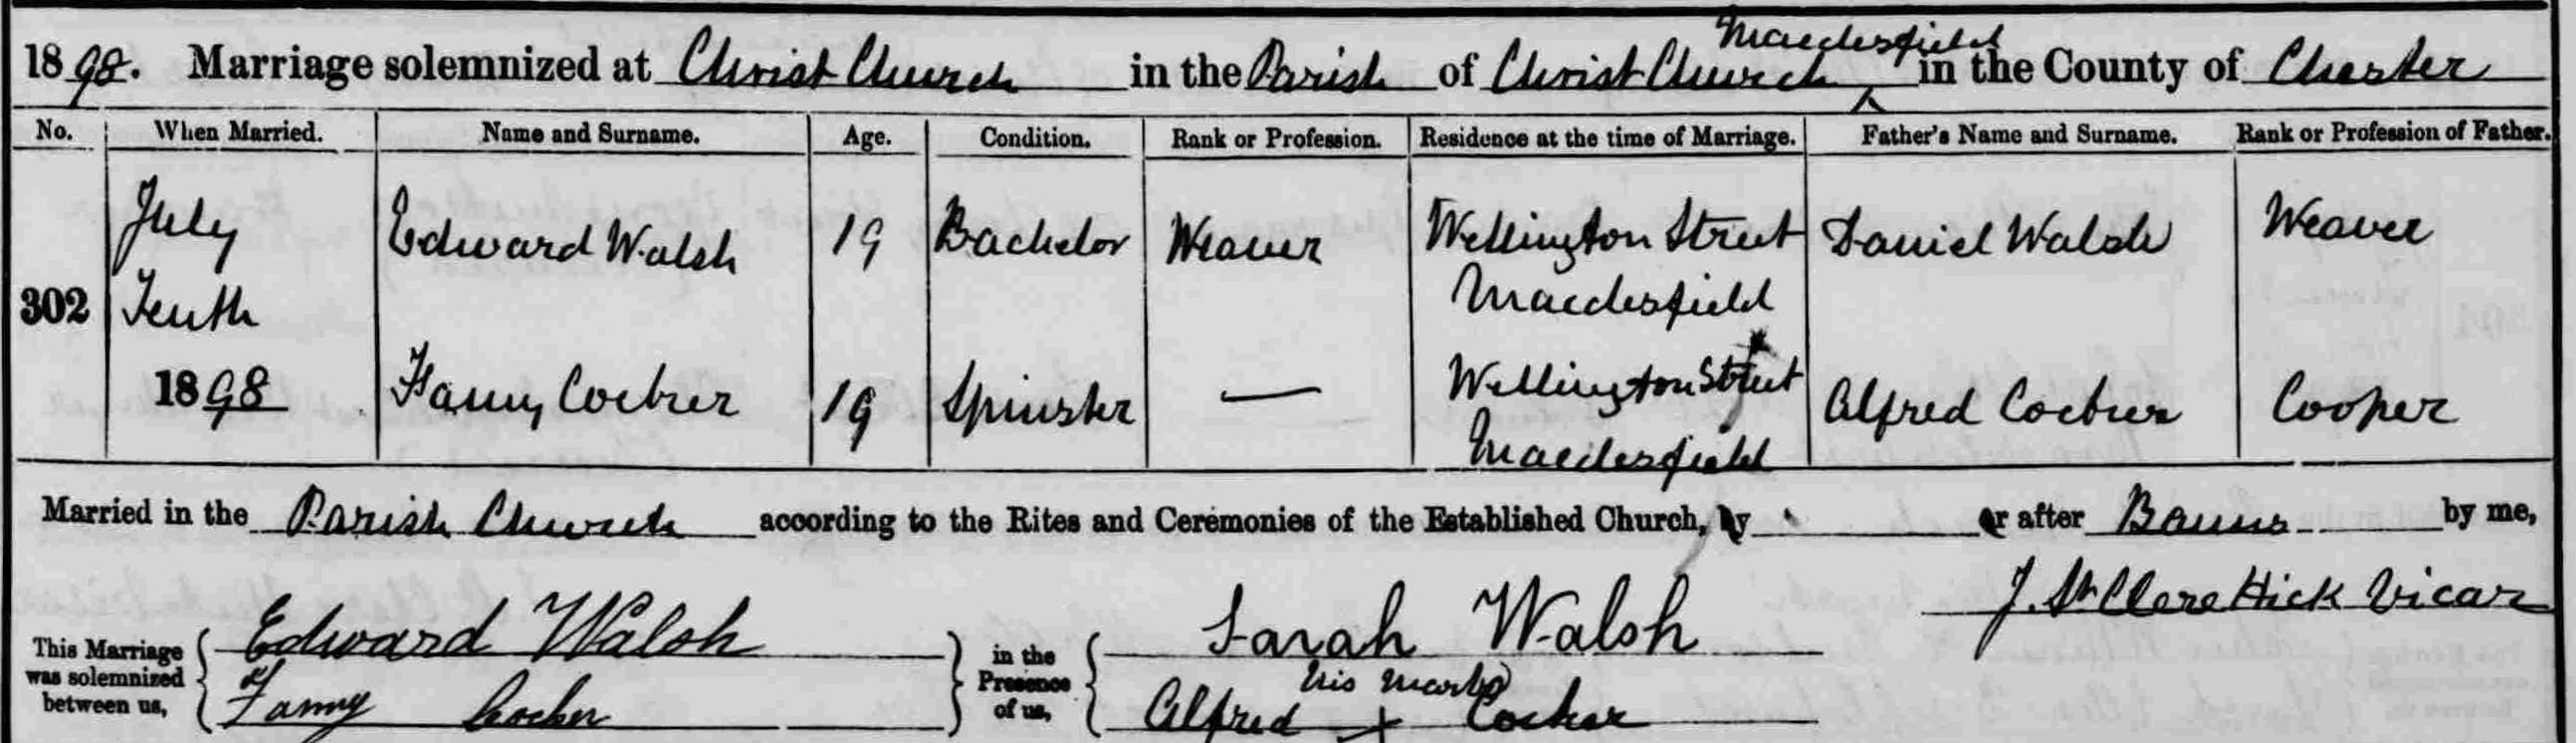 1898. Marriage solemnized at Christ Church in the Parish of Christ Church Macclesfield in the County of Chester
No. When Married. Name and Surname. Age. Condition. Rank or Profession. Residence at the time of Marriage. Father's Name and Surname. Rank or Profession of Father.
302 July Tenth 1898 Edward Walsh 19 Bachelor Weaver Wellington Street Macclesfield Daniel Walsh Weaver
Fanny Cocker 19 Spinster — Wellington Street Macclesfield Alfred Cocker Cooper
Married in the Parish Church according to the Rites and Ceremonies of the Established Church, by or after Banns by me,
J. St Clere Hick Vicar
This Marriage was solemnized between us, Edward Walsh Fanny Cocker in the Presence of us, Sarah Walsh Alfred his mark x Cocker